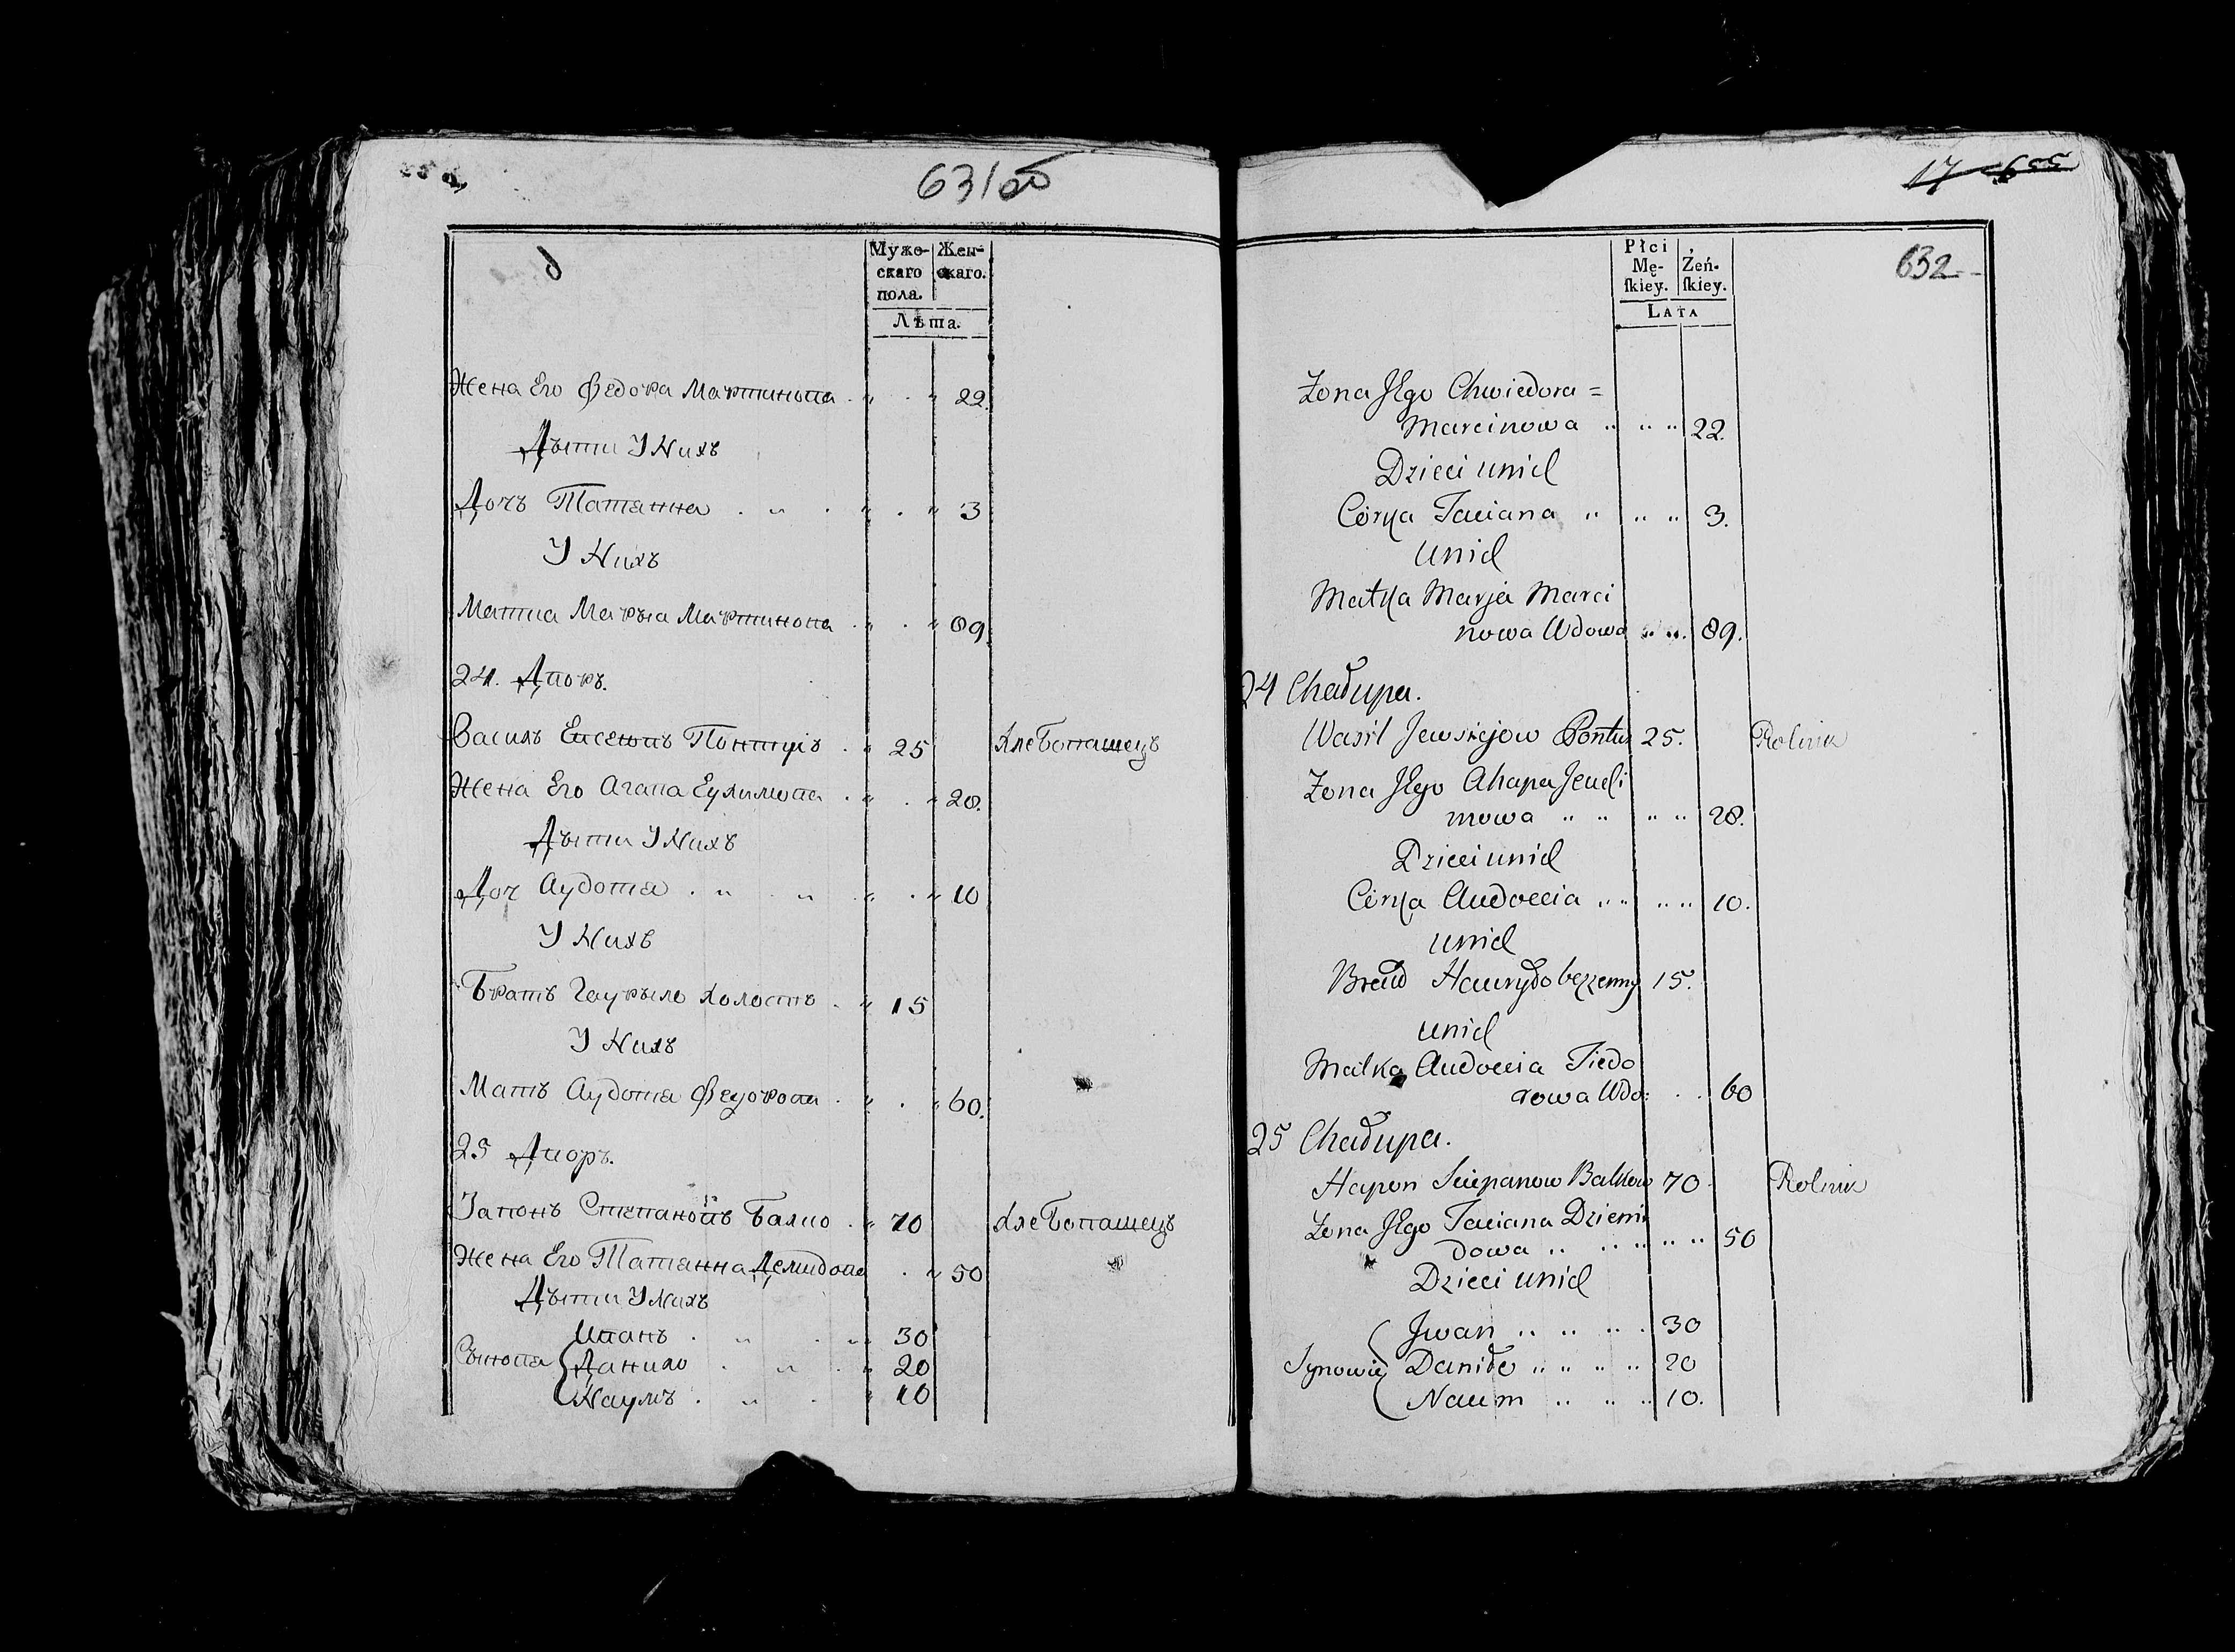 631об
Мужескаго пола.
Женскаго.
Лѣта.
Жена Его Федора Мартинова 22.
Дѣти У Нихъ
Дочъ Татянна 3
У Нихъ
Матка Маръя Мартинова 89.
24. Дворъ.
Василь Евсеювъ Понтусъ 25 Хлебопашецъ
Жена Его Агапа Еухимова 28.
Дѣти У Нихъ
Доч Аудотя 10
У Нихъ
Братъ Гаурыло холостъ 15
У Нихъ
Мать Аудотя Федорова 60.
25 Дворъ.
Гапонъ Степановъ Балко 70 Хлебопашецъ
Жена Его Татянна Демидова 50
Дѣти У Нихъ
Иванъ 30
Сынова Данило 20
Наумъ 10
17 655
632
Płci
Męſkiey.
Żeńſkiey.
LATA
Żona JEgo Chwiedora =
Marcinowa 22.
Dzieci unich
Córka Taciana 3.
unich
Matka Marja Marci
nowa Wdowa 89.
24 Chałupa.
Wasil Jewsiejow Pontus 25. Rolnik
Żona JEgo Ahapa Jeuchi
mowa 28.
Dzieci unich
Córka Audoccia 10.
unich
Brat Hauryło bezżenny 15.
unich
Matka Audoccia Fiedo
rowa Wdo: 60
25 Chałupa.
Hapon Sciepanow Balkow 70 Rolnik
Żona JEgo Taciana Dziemi
dowa 50
Dzieci unich
Jwan 30
Synowie Daniło 20
Naum 10.